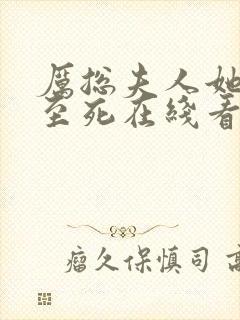 厲揔夫人她
至死在綫看
瘤久保慎司 高